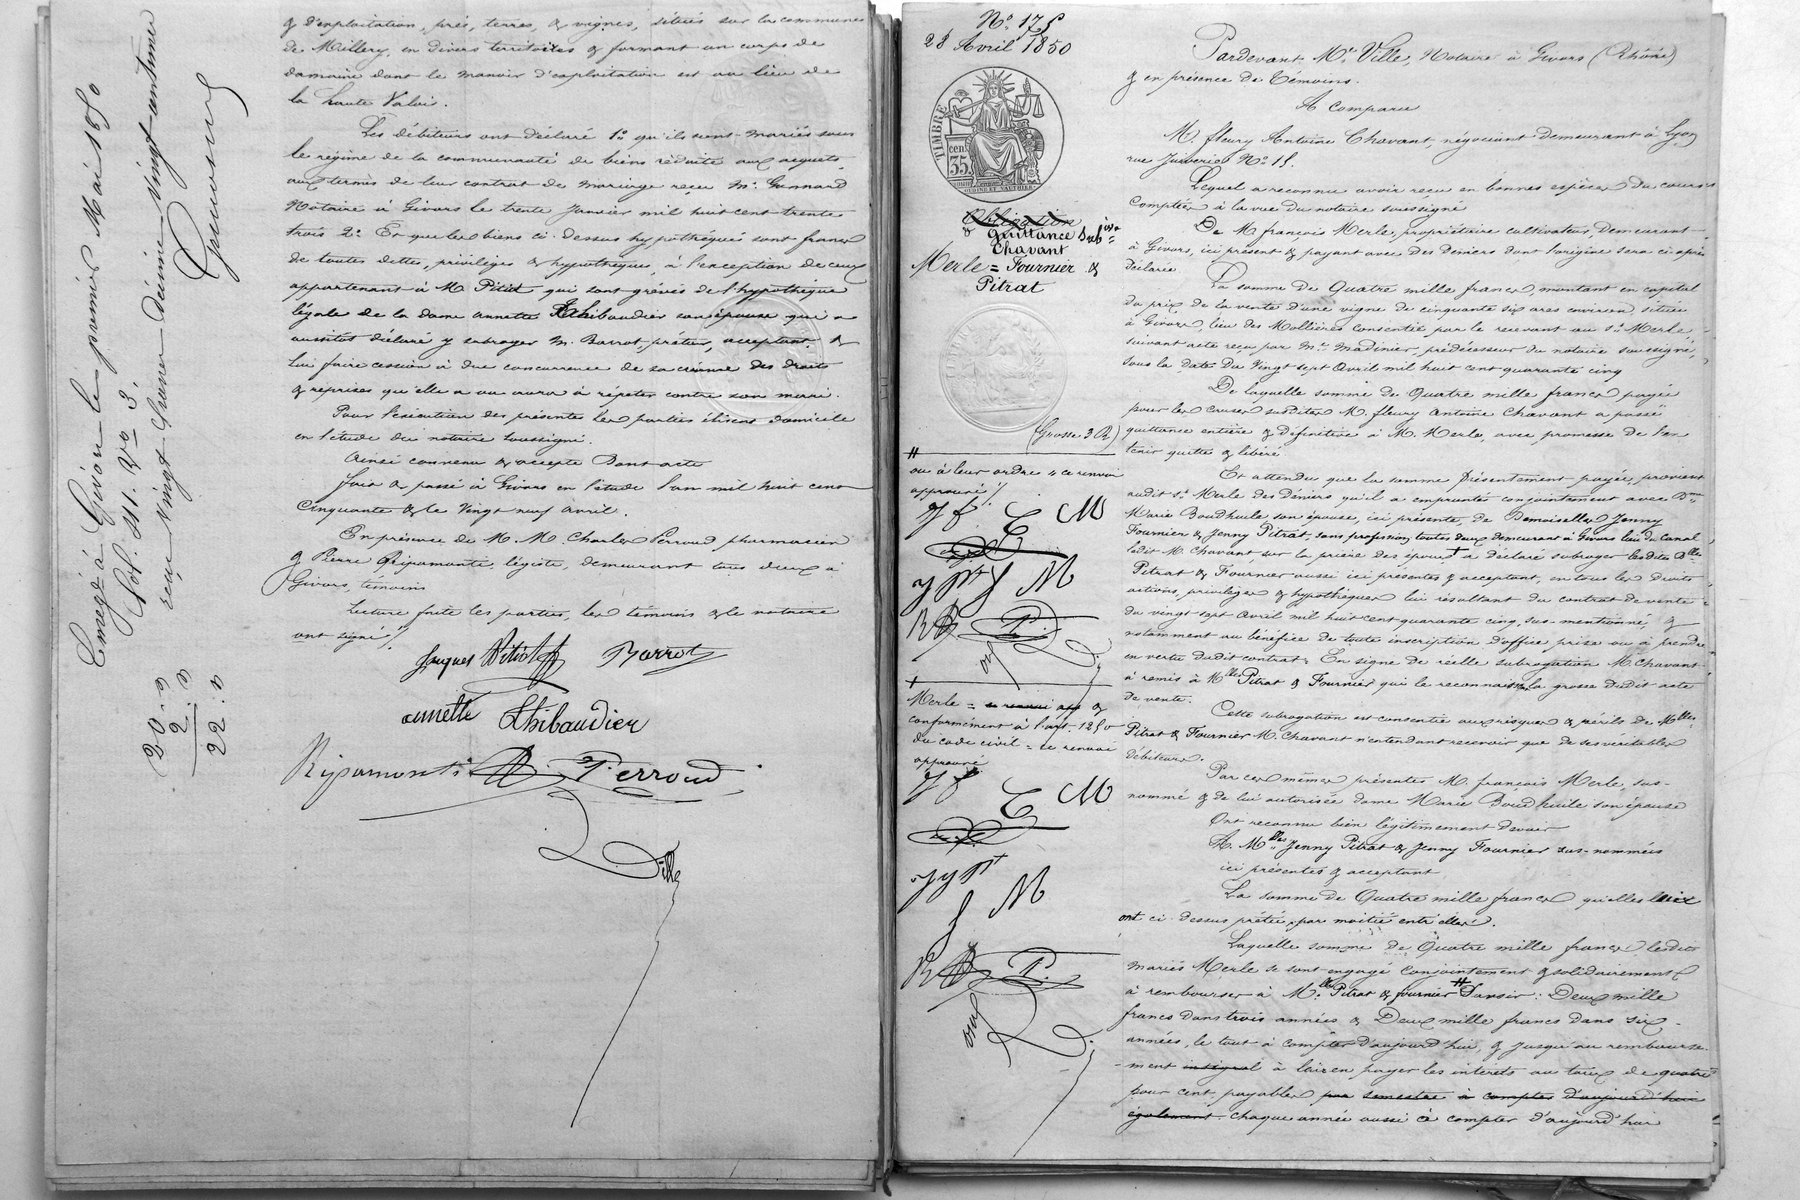 & d'exploitation, prés, terres, & vignes, situés sur la commune
de Millery, en divers territoires & formant un corps de
domaine dont le manoir d'exploitation est au lieu de
la haute Valois.
Les débiteurs ont déclaré 1o qu'ils sont mariés sous
le régime de la communauté de biens réduite aux acquets
aux termes de leur contrat de mariage reçu Me Gonnard
Notaire à Givors le trente Janvier mil huit cent trente
trois 2o Et que les biens ci-dessus hypothéqués sont francs
de toutes dettes, privilèges & hypothèques, à l'exception de ceux
appartenant à M. Pitiot qui sont grévés de l'hypothèque
légale de la dame annette Thibaudier son épouse qui a
aussitot déclaré y subroger M. Barrot, prêteur, acceptant, &
lui faire cession à due concurrence de sa créance des droits
& reprises qu'elle a ou aura à répéter contre son mari.
Pour l'exécution des présentes les parties élisent domicile
en l'étude du notaire soussigné.
Ainsi convenu & accepté Dont acte
Fait & passé à Givors en l'étude l'an mil huit cent
Cinquante & le vingt neuf avril.
En présence de M. M. Charles Perroud pharmacien
& Pierre Ripamonti, légiste, demeurant tous deux à
Givors, témoins
Lecture faite les parties, les témoins & le notaire
ont signé /.
Jacques Pitiot Barrot
annette Thibaudier
Ripamonti P. Perroud
Ville
Enregé à Givors le premier Mai 1850
fol. 111. Vo 3.
reçu vingt francs décime vingt centimes
20. "
2. "
22. "
No 175
28 Avril 1850
TIMBRE
35 cen.
Obligation
Quittance Subron
Chavant
Merle = Fournier &
Pitrat
(Grosse 3 R)
ou à leur ordre = ce renvoi
approuvé /.
J f C M
J Pt f M
R P.
Merle = ce renvoi app &
conformément à l'art. 1250
du code civil = ce renvoi
approuvé
J f C M
J Pt
f M
R P.
Pardevant Me Ville, Notaire à Givors (Rhône)
& en présence de témoins.
A comparu
M. fleury Antoine Chavant, négociant demeurant à Lyon
rue Juiverie No 15.
Lequel a reconnu avoir reçu en bonnes espèces du cours
Comptées à la vue du notaire soussigné
De M. françois Merle, propriétaire cultivateur, demeurant
à Givors, ici présent & payant avec des deniers dont l'origine sera ci après
déclarée
La somme de Quatre mille francs, montant en capital
du prix de la vente d'une vigne de cinquante six ares environ, située
à Givors, lieu des Mollières consentie par le recevant au Sr Merle
suivant acte reçu par Me Madinier, prédécesseur du notaire soussigné,
sous la date du Vingt sept Avril mil huit cent quarante cinq
De laquelle somme de Quatre mille francs payée
pour les causes susdites M. fleury Antoine Chavant a passé
quittance entière & définitive à M. Merle, avec promesse de l'en
tenir quitte & libéré
Et attendu que la somme présentement payée, provient
audit Sr Merle des deniers qu'il a empruntés conjointement avec Dme
Marie Boudhuile son épouse, ici présente, de Demoiselles Jenny
Fournier & Jenny Pitrat, sans profession, toutes deux demeurant à Givors lieu du canal
ledit M. Chavant, sur la prière des époux + a déclaré subroger lesdites Dlles
Pitrat & Fournier aussi ici présentes & acceptant, en tous les droits
actions, privilèges & hypothèques lui résultant du contrat de vente
du vingt sept Avril mil huit cent quarante cinq, sus-mentionné, &
notamment au bénéfice de toute inscription d'office prise ou à prendre
en vertu dudit contrat. En signe de réelle subrogation M. Chavant
à remis à Mlles Pitrat & Fournier qui le reconnaissent la grosse dudit acte
de vente.
Cette subrogation est consentie aux risques & périls de Mlles
Pitrat & Fournier M. Chavant n'entendant recevoir que de ses véritables
débiteurs.
Par ces mêmes présentes M. françois Merle, sus-
nommé & de lui autorisée dame Marie Boudhuile son épouse
Ont reconnu bien légitimement devoir
A Mlles Jenny Pitrat & Jenny Fournier sus-nommées
ici présentes & acceptant
La somme de Quatre mille francs qu'elles leur
ont ci-dessus prêtée, par moitié entr'elles.
Laquelle somme de Quatre mille francs lesdits
mariés Merle se sont engagé conjointement & solidairement
à rembourser à Mlles Pitrat & fournier # Savoir: Deux mille
francs dans trois années & Deux mille francs dans six
années, le tout à compter d'aujourd'hui, & jusqu'au rembourse-
-ment intégral à leur en payer les intérêts au taux de quatre
pour cent, payables par semestre à compter d'aujourd'hui
également chaque année aussi à compter d'aujourd'hui